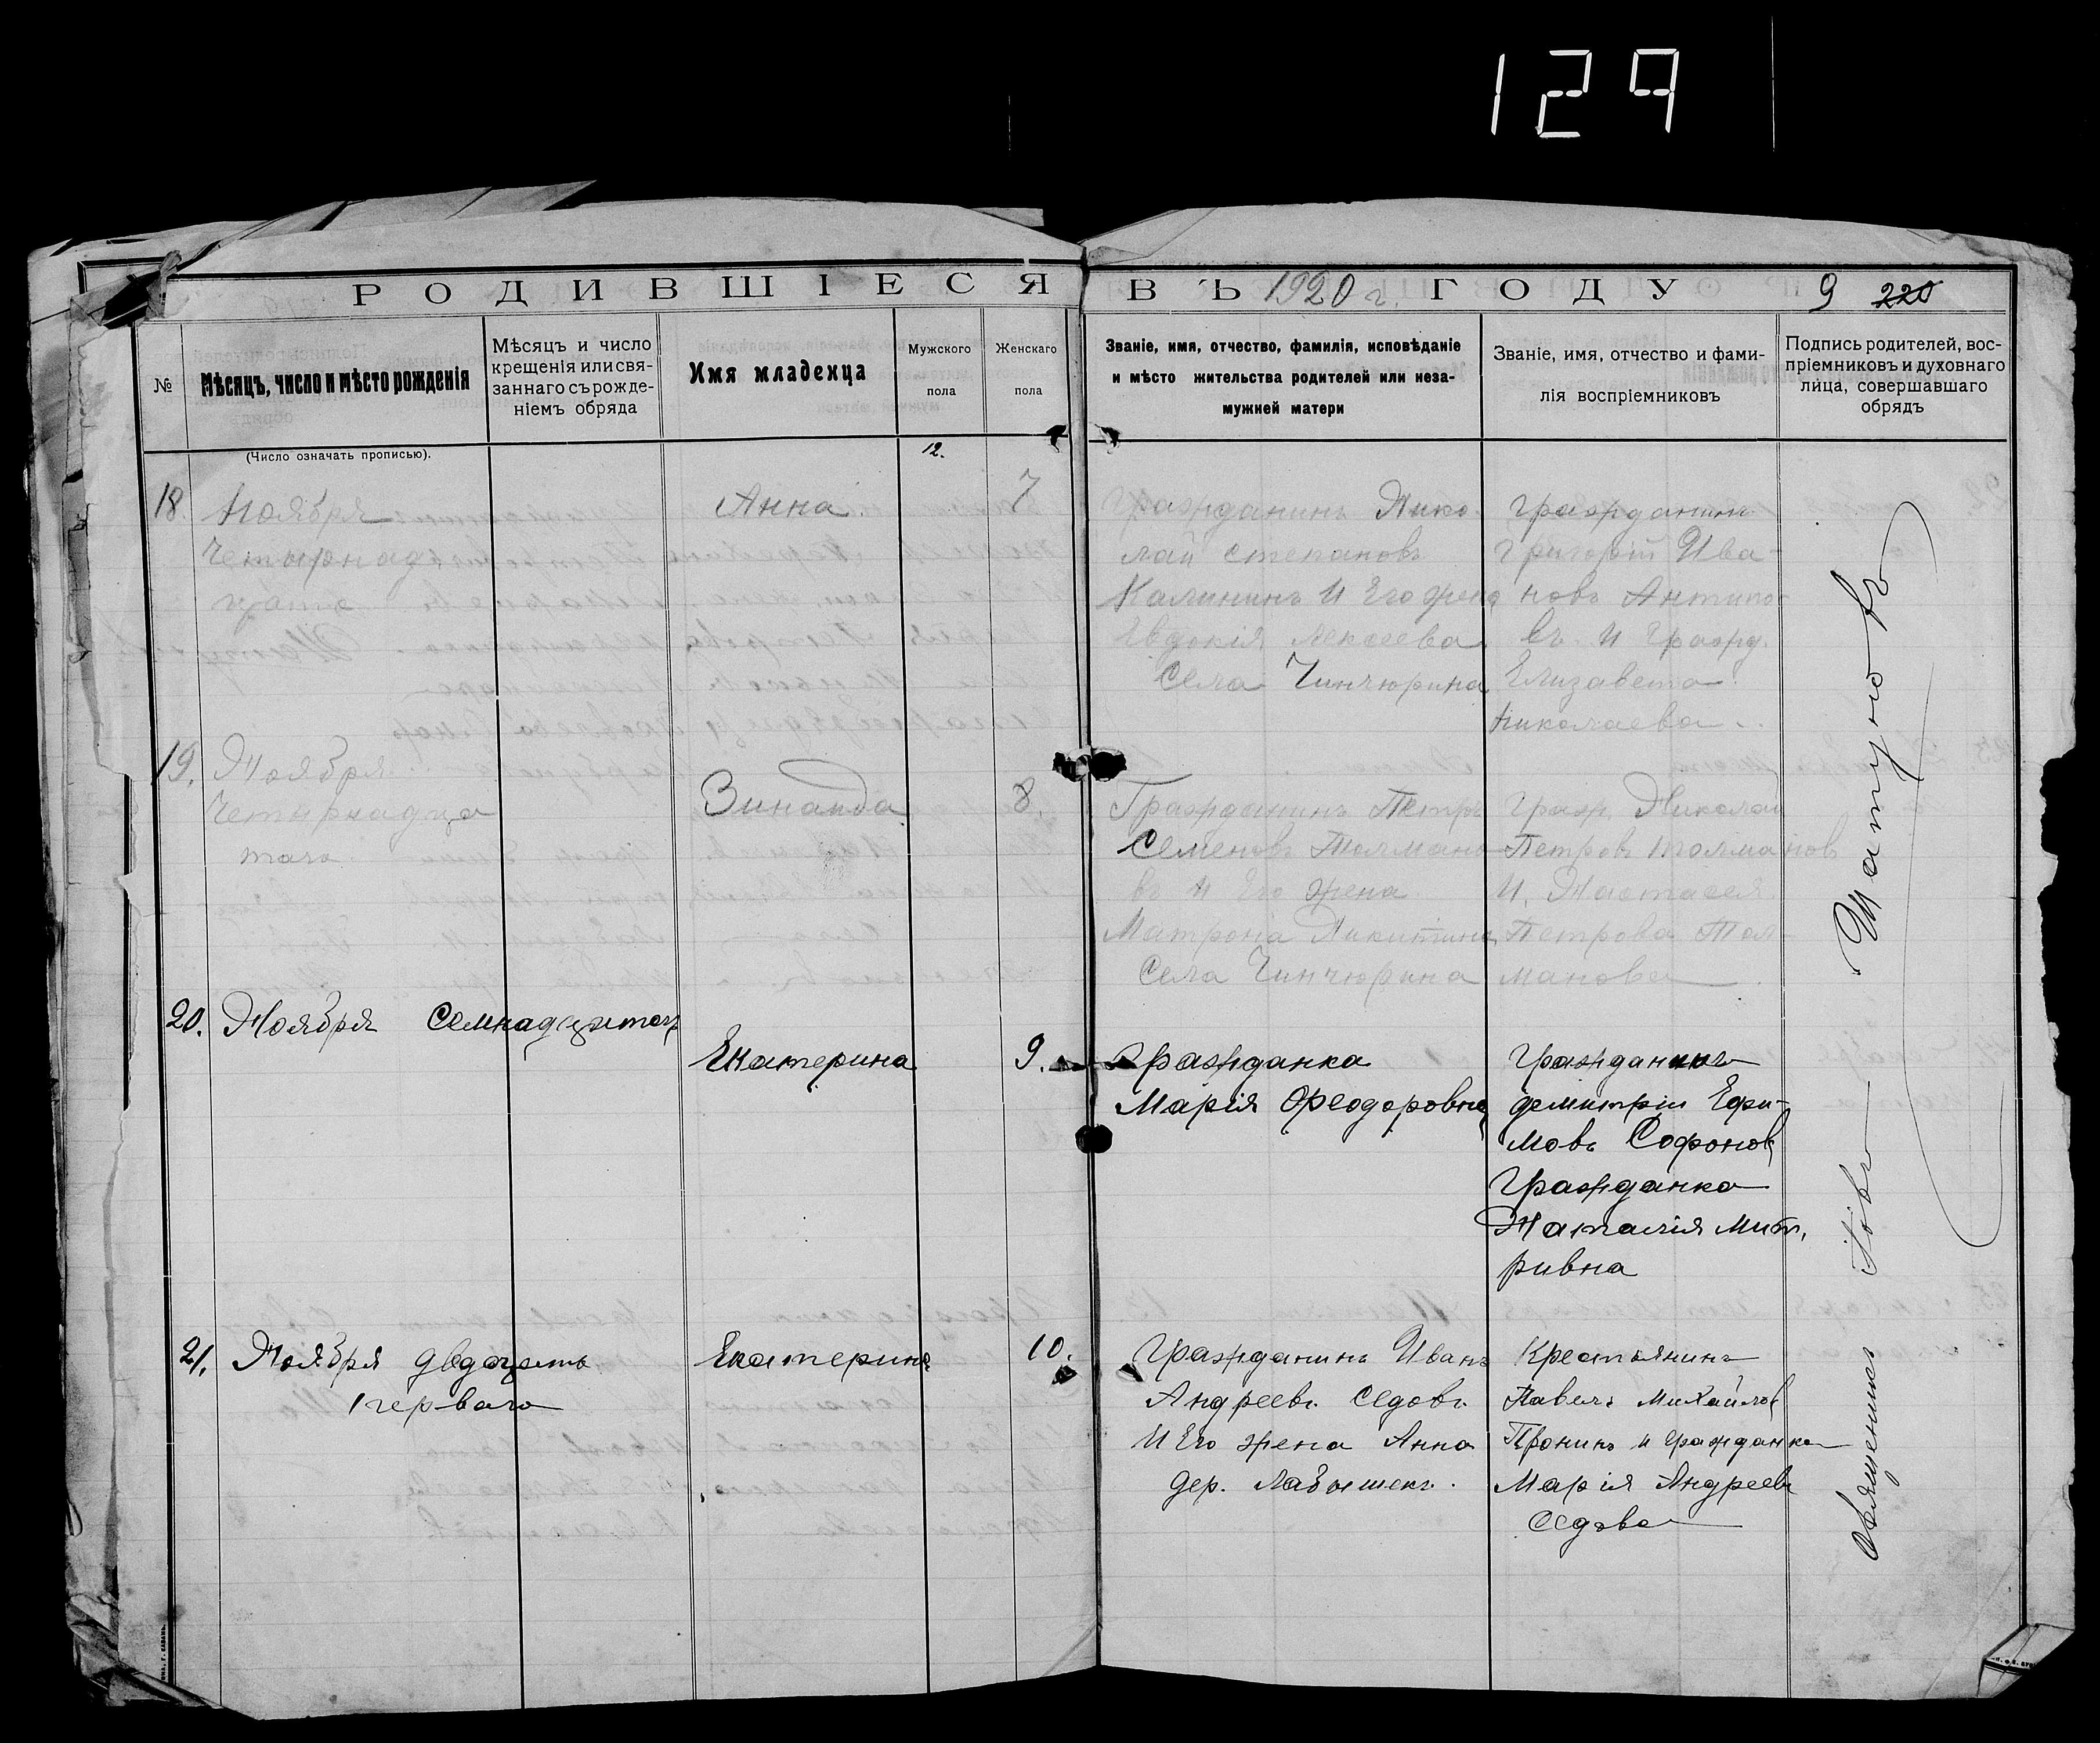 129
РОДИВШІЕСЯ ВЪ 1920 г. ГОДУ 9 220
№
Мѣсяцъ, число и мѣсто рожденія
Мѣсяцъ и число
крещенія или свя-
заннаго съ рожде-
ніемъ обряда
Имя младенца
Мужского
пола
Женскаго
пола
Званіе, имя, отчество, фамилія, исповѣданіе
и мѣсто жительства родителей или неза-
мужней матери
Званіе, имя, отчество и фами-
лія воспріемниковъ
Подпись родителей, вос-
пріемниковъ и духовнаго
лица, совершавшаго
обрядъ
(Число означать прописью).
12.
18.
Ноября
Четырнадъ
цата
Анна.
7
Гражданинъ Нико
лай Степановъ
Калининъ И Его жена
Евдокія Алексеева
Села Чинчюрина
Гражданинъ
Григорій Ива-
новъ Антипо-
въ И Гражд.
Елизавета
Николаева
19.
Ноября
Четырнадца
таго.
Зинаида
8.
Гражданинъ Петръ
Семеновъ Толмано
въ И Его жена
Матрона Никитина
Села Чинчюрина
Граж. Николай
Петровъ Толмановъ
И. Настасея
Петрова Тол-
манова
20.
Ноября Семнадцатаго
Екатерина
9.
Гражданка
Марія Ѳеодоровна
Гражданинъ
Димитріи Ефи-
мовъ Софонов
Гражданка
Наталія Мит,
ривна
21.
Ноября двадцать
первого
Екатерина
10.
Гражданинъ Иванъ
Андреевъ Седовъ
И Его жена Анна
Дер. Лабышекъ.
Крестьянинъ
Павелъ Михайлов
Пронинъ и гражданка
Марія Андреев
Седова
Священникъ Іовъ Шатуновъ